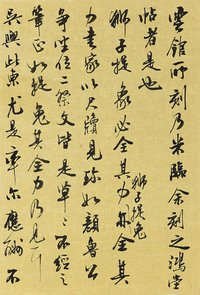 雲館所刻乃米臨余刻之鴻堂
帖者是也
獅子提兔
獅子提象必全其力亦全其
力書家以尺牘見珍如顏魯公
爭坐位二祭文皆是草々不經之
筆正如提兔其全力乃見
吳興此柬尤是率尔應酬不